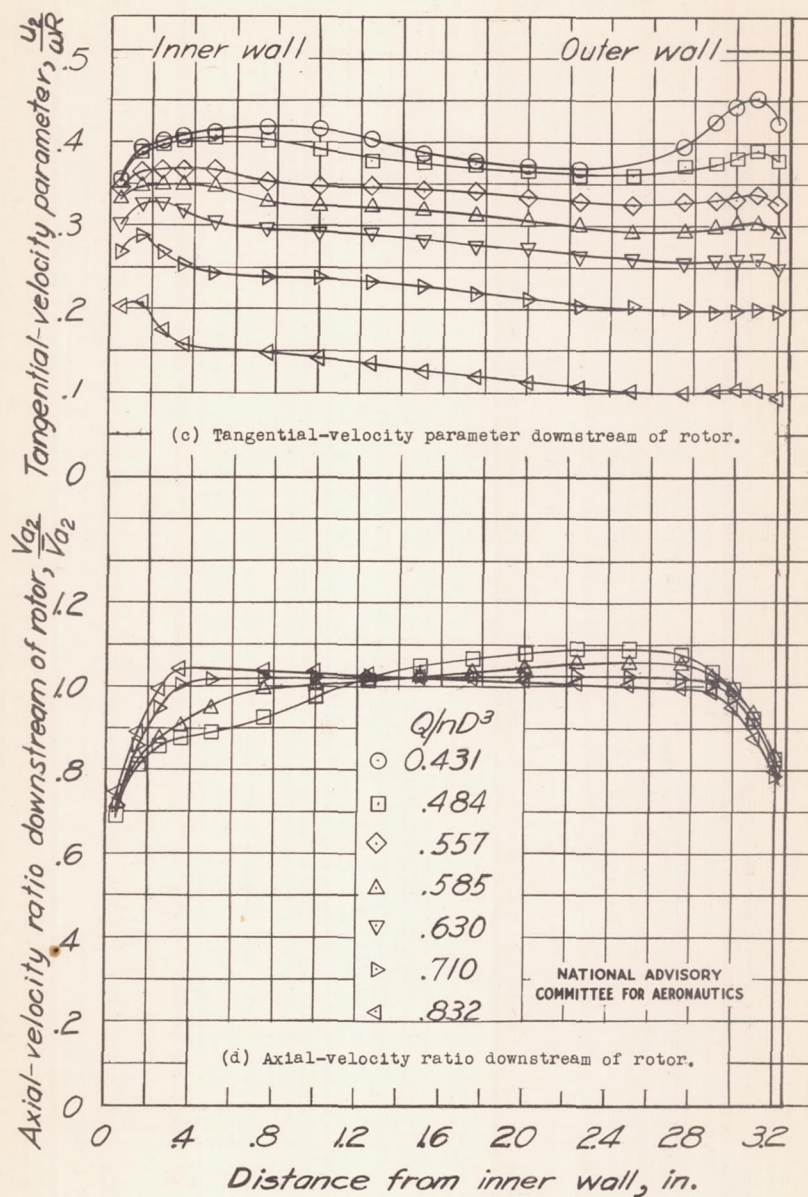 Tangential-velocity parameter, u₂/ωR
Inner wall
Outer wall
.5
.4
.3
.2
.1
0
(c) Tangential-velocity parameter downstream of rotor.
Axial-velocity ratio downstream of rotor, Va₂/V̄a₂
1.2
1.0
.8
.6
.4
.2
0
Q/nD³
0.431
.484
.557
.585
.630
.710
.832
NATIONAL ADVISORY
COMMITTEE FOR AERONAUTICS
(d) Axial-velocity ratio downstream of rotor.
0 .4 .8 1.2 1.6 2.0 2.4 2.8 3.2
Distance from inner wall, in.